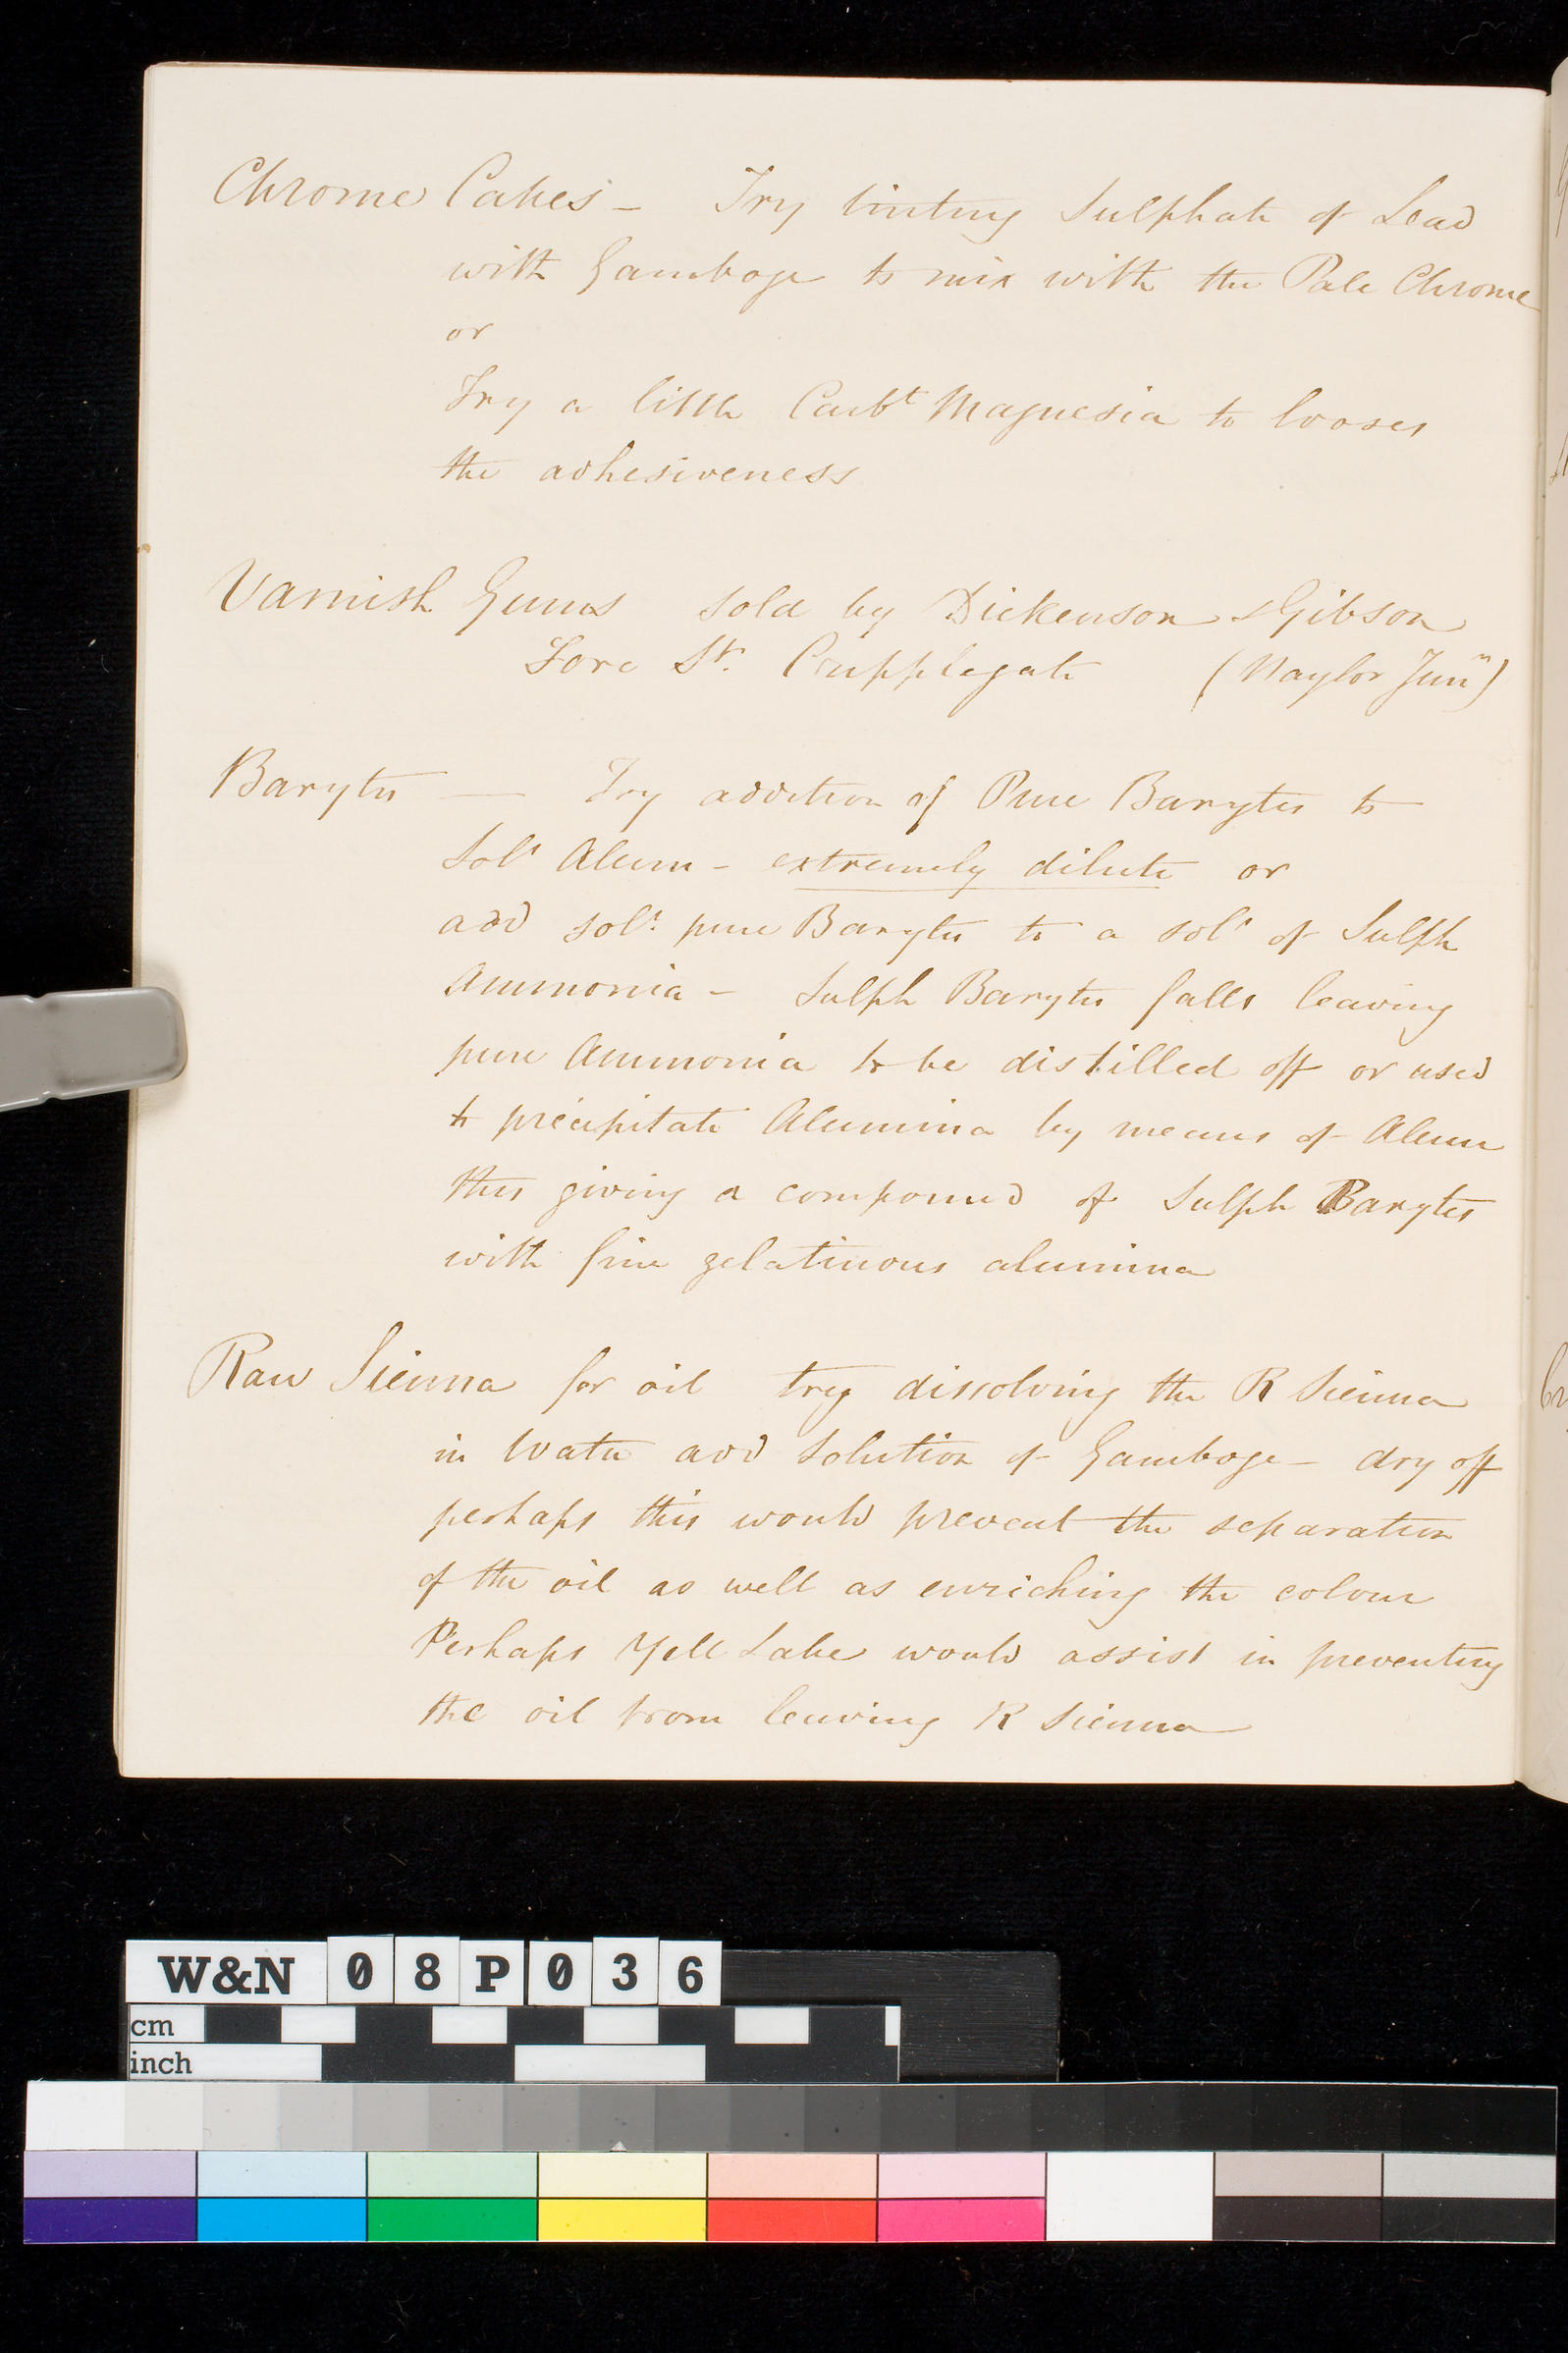 Chrome Cakes – Try tinting Sulphate of Lead
with Gamboge to mix with the Pale Chrome
or
Try a little Carbt Magnesia to loosen
the adhesiveness
Varnish Gums sold by Dickenson & Gibson
Fore St. Cripplegate (Naylor Junr)
Barytes — Try addition of Pure Barytes to
Soln Alum – extremely dilute or
add soln pure Barytes to a soln of Sulph
Ammonia – Sulph Barytes falls leaving
pure Ammonia to be distilled off or used
to precipitate Alumina by means of Alum
thus giving a compound of Sulph Barytes
with fine gelatinous alumina
Raw Sienna for oil try dissolving the R Sienna
in Water add solution of Gamboge – dry off
perhaps this would prevent the separation
of the oil as well as enriching the colour
Perhaps Yell Lake would assist in preventing
the oil from leaving R Sienna
W&N 08P036
cm
inch